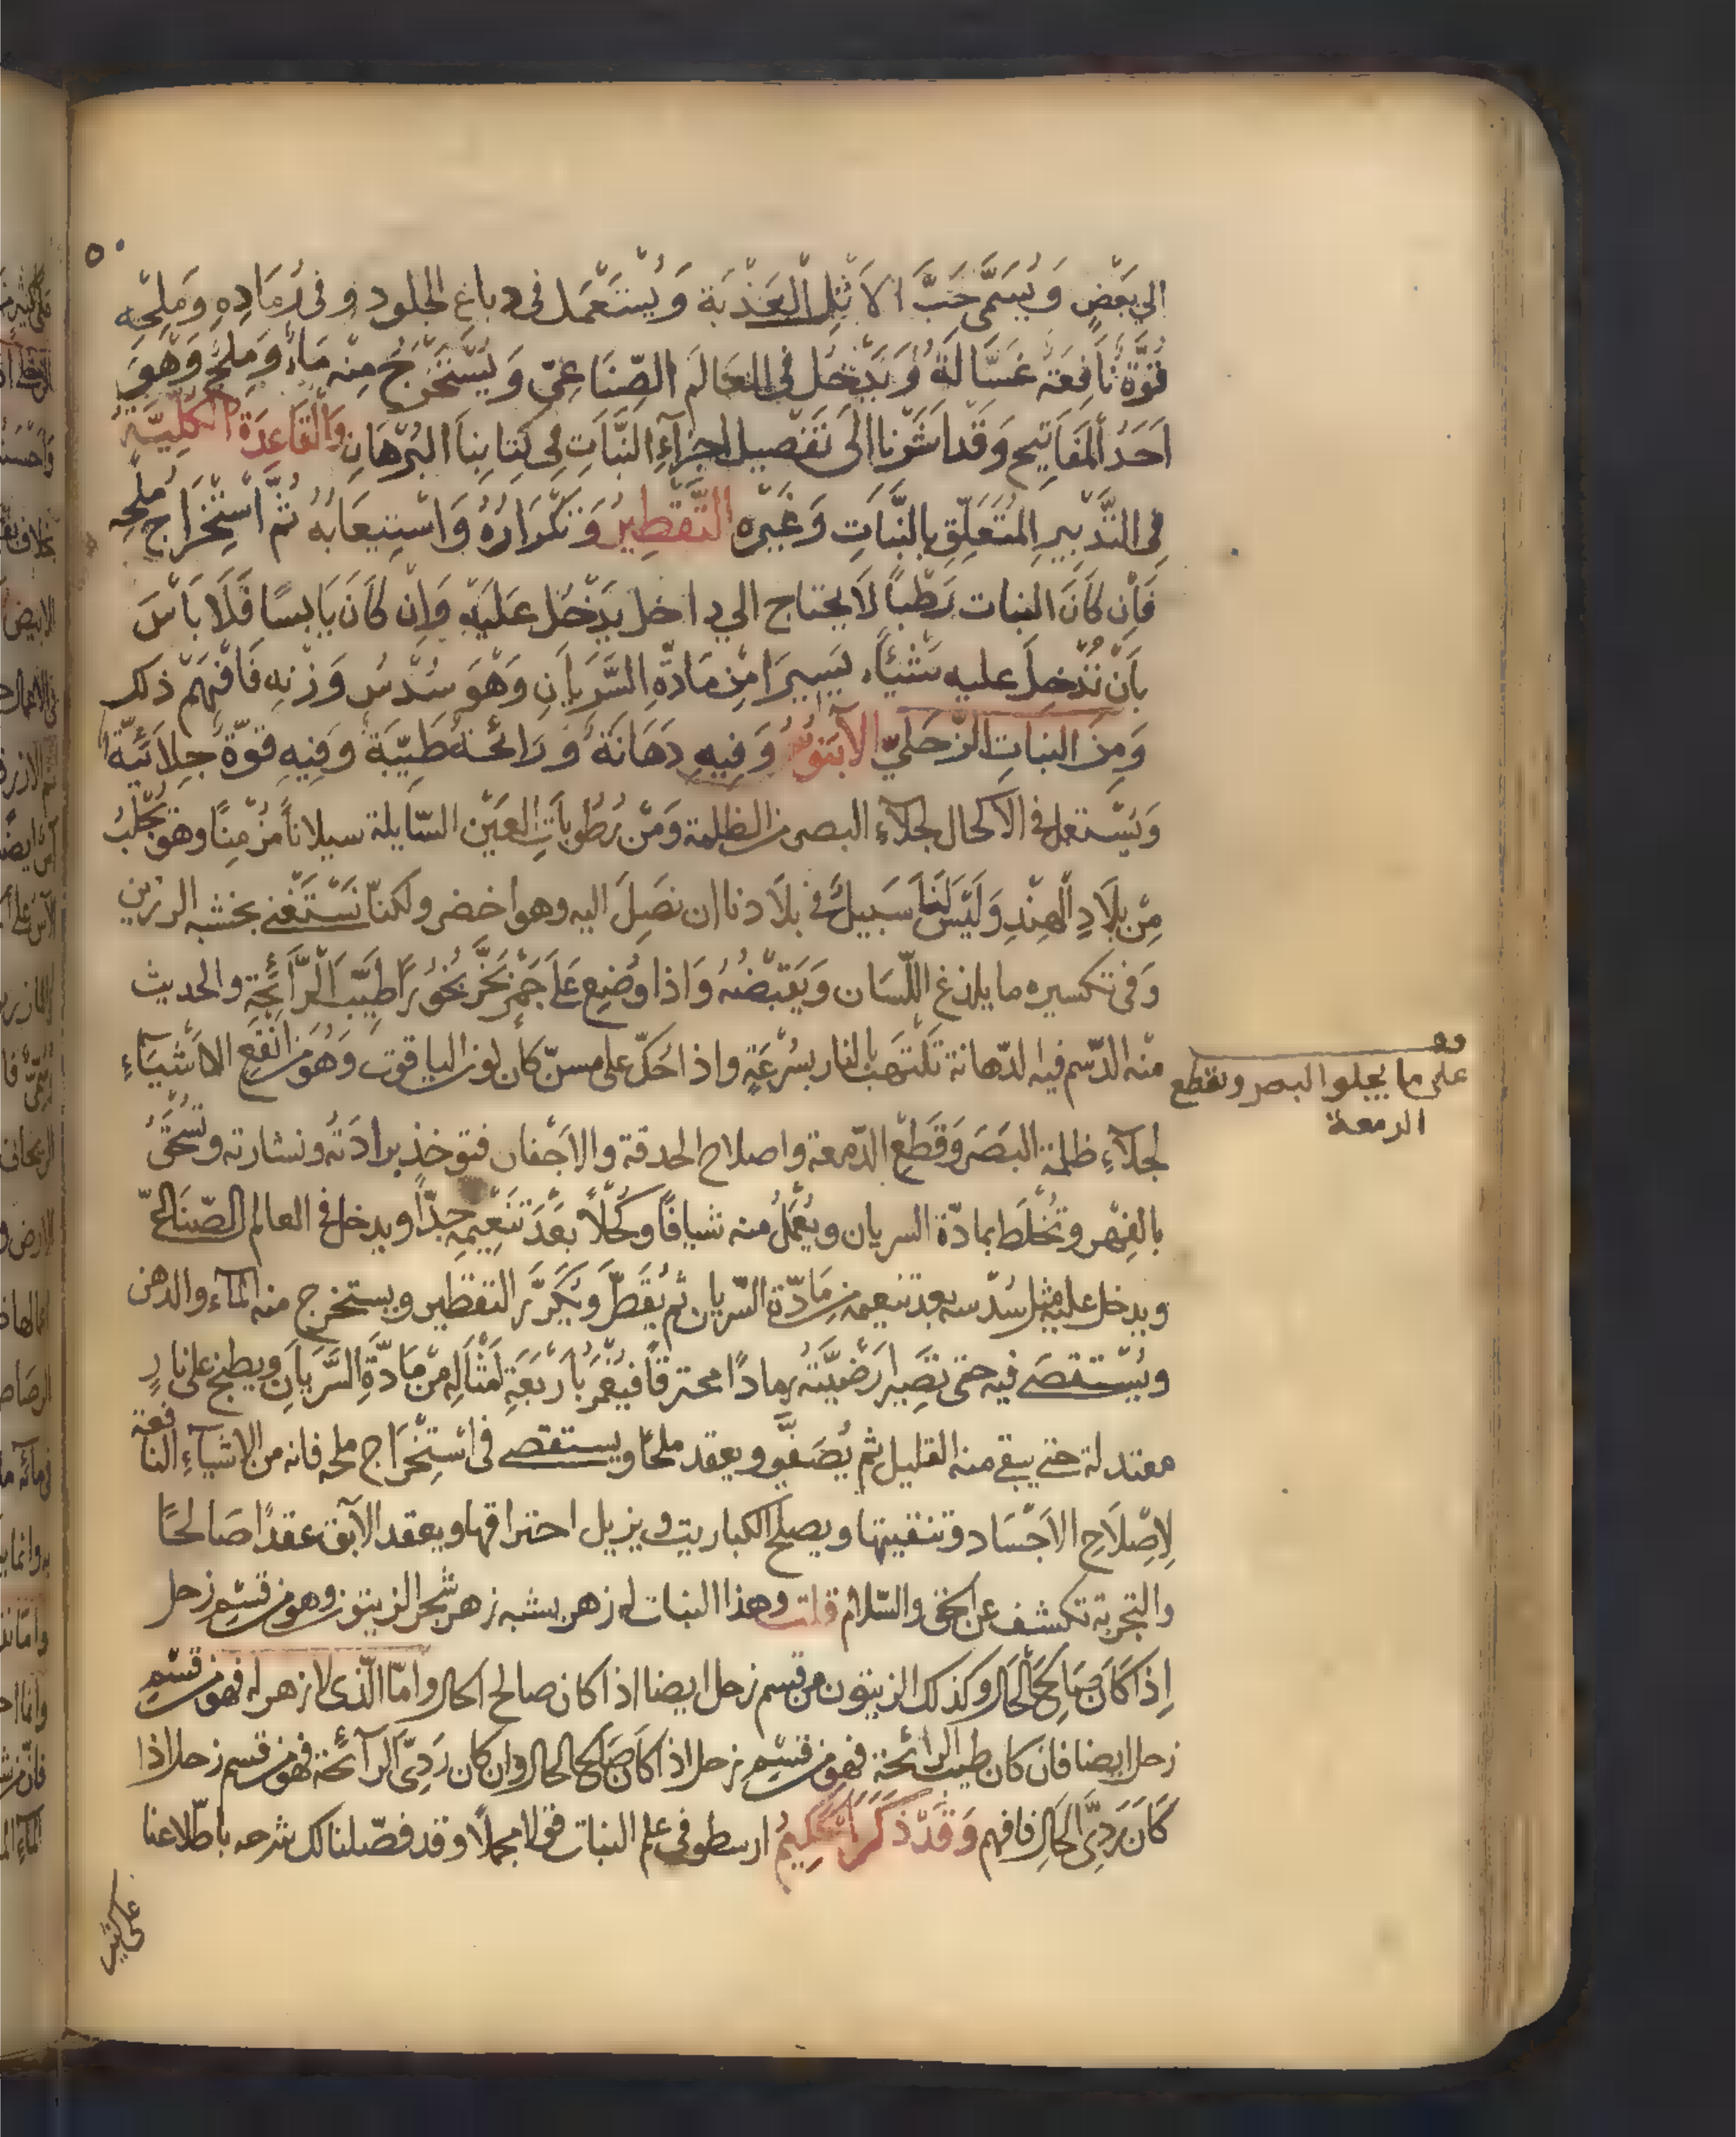 ٥٠
الي بَعْضٍ وَيُسَمَّى حَبَّ الاَثْلِ العَذْبَة وَيُسْتَعْمَل في دباغ الجلود وفي رَمَادِهِ وَمَلِحْهِ
قُوَّة نَافِعَة غَسَّالَة وَيَدْخُل في العَالَم الصّنَاعِيّ وَيُسْتَخْرَجُ مِنْه مَاءٌ وَمِلحٌ وَهُوَ
اَحَدُ المَفَاتِيح وَقَد اَشَرْنا اِلَى تَفْصِيل اجزآءِ النَّبَاتِ فِي كِتَابِنَا البُرْهَانِ وَالْقَاعِدَة الكُلِّيَّةُ
فِي التَّدْبِيرِ المُتَعَلِّقِ بِالنَّبَاتِ وَغَيْرِه التَّقْطِيرُ وَتَكْرَارُهُ وَاسْتِيعَابُهُ ثُمَّ اسْتِخْرَاج مُلْحِه
فَاِن كَانَ النبات رَطْباً لَا يحتاج الي داخل يَدْخُل عَلَيْهِ وَاِنْ كَانَ يَابسًا فَلَا بَأْسَ
بَأَنْ نُدْخِلَ عليه شَيْئًاء يَسِيرًا مِن مَادَّةِ السَّرَيَانِ وَهْوَ سُدْسُ وَزْنِهِ فَافْهَمْ ذلك
وَمِنَ النبَاتِ الزّحَلِيّ الآبَنوُسُ وَفِيهِ دَهَانَةٌ وَرَائحَةٌ طَيِّبَةٌ وَفِيهِ قوّةٌ جِلَائيَّةٌ
وَيُسْتَعمل في الاكحال لجلآءِ البصر من الظلمة وَمَن رُطُوبَاتِ العَيْن السّايلة سيلاناً مُزْمِنًا وهو يُجْلَبُ
مِنْ بِلَادِ الْهِنْدِ وَلَيْسَ لَنَا سَبيلٌ في بلَادنا ان نَصِلَ اليه وهو اخضر ولكنّا نَسْتَغْنِي بخشبه الرزين
وَفي تكسيره ما يلذغ اللّسَان وَيَقبضُهُ وَاذا وُضِع عَلَي جَمْرٍ بَخَّرَ بُخُورًا طَيِّبَ الرَّائحَةِ والحديث
مِنْه الدّسم فيه الدّهانة تَلْتَهب بالنار بِسُرْعَةٍ واذا حَكّ على مسنّ كان لون الياقوت وَهُوَ من انفَعِ الاشْيَآءِ
وهو
على ما يجلو البصر ويقطع
الدمعة
لجلآءِ ظلمة البَصَر وَقَطْع الدّمعة واصلاح الحدقة والاجْفان فتوخذ برادَتُه ونشارته وتُسْحَقُ
بالفِهْر وتُخْلَط بمادّة السريان ويُعْمَلُ منه شيافًا وكُحْلاً بَعْدَ تَنْعِيمِهِ جدّاً ويدخل في العالم الصّنَاعِيّ
ويدخل عليه مثل سُدْسه بعد تنعيمه من مَادّة السّريان ثم يُقَطَّر ويُكَرَّر التقطير ويستخرج منه المآء والدهن
ويُسْتقصَي فيه حتى تصِير اَرْضِيَّتُهُ رمادًا محترقًا فيُغْمَرُ بأَرْبَعَةِ اَمْثَالِهِ مِنْ مَادَّةِ السَّرَيَانِ ويطبخ على نارٍ
معتدلة حتي يبقي منه القليل ثم يُصَفّي ويعقد ملحًا ويستقصي في اسْتِخْرَاج ملحه فانه من الاشيآءِ النافعة
لِاِصْلَاحِ الاَجْسَاد وتنقيتها ويصلح الكباريت ويزيل احتراقها ويعقد الآبق عقدًا صَالحًا
والتجربة تكشف عن الحق والسّلام قلت وهذا النبات له زهر يشبه زهر شجر الزيتون وهو من قسْمِ زحل
اِذَا كَانَ صَالِحَ الْحَال وكذلك الزيتون من قسم زحل ايضا اذا كان صالح الحال وامّا الّذى لا زهر له فهو من قسْم
زحل ايضا فان كان طيب الرائحة فهو من قسْمِ زحل اذا كَانَ صَالح الحال وان كان رَدِيَّ الرآئحة فهو من قسم زحل اذا
كَانَ رَدِيَّ الحَالِ فافهم وَقَدْ ذكَرَ الْحَكِيمُ ارسطو في علم النبات قولا مجملًا وقد فصّلنا لك شرحه باطّلاعنا
على كثير